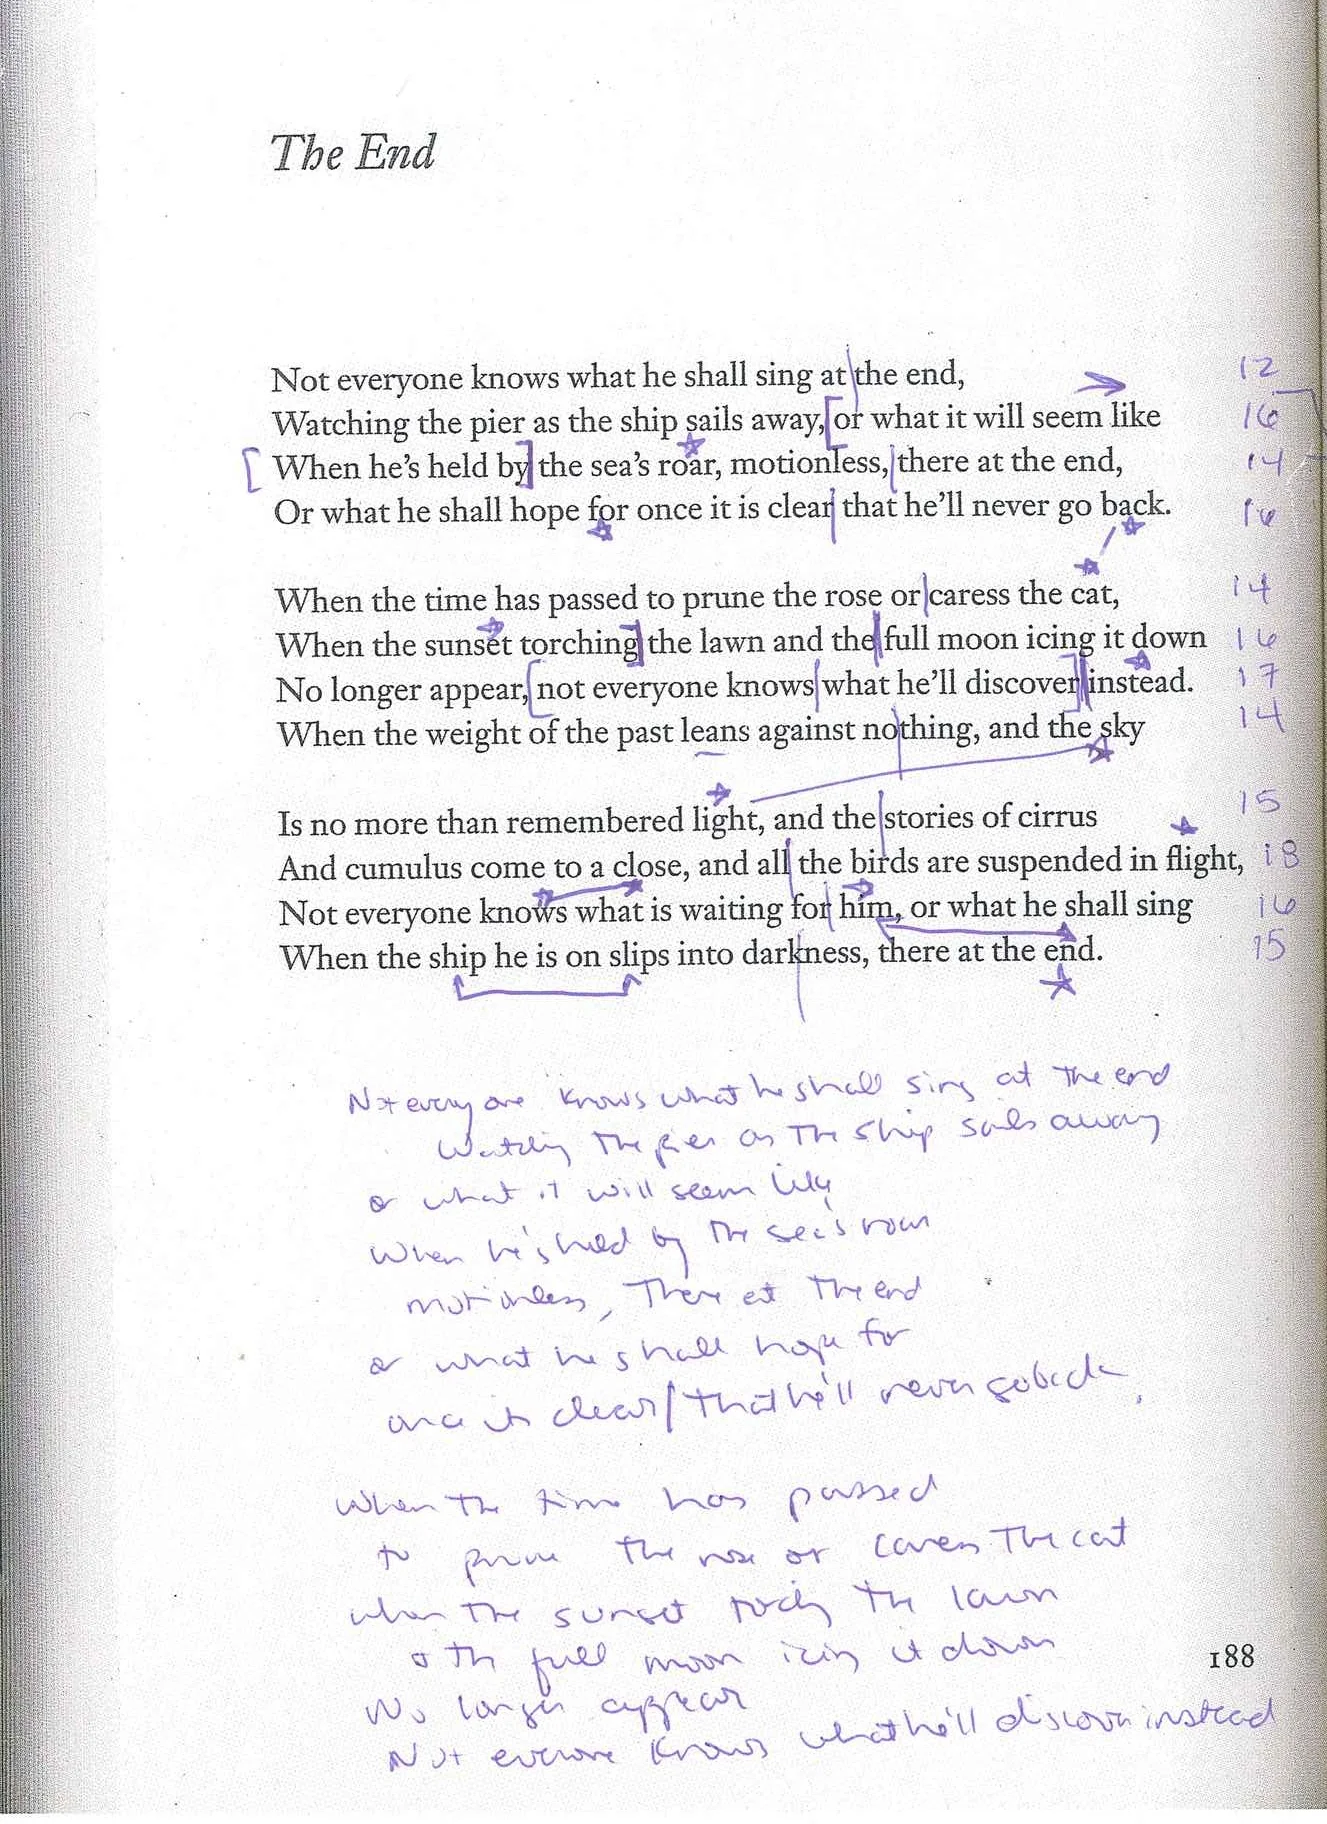 The End
Not everyone knows what he shall sing at the end, 12
Watching the pier as the ship sails away, or what it will seem like 16
When he's held by the sea's roar, motionless, there at the end, 14
Or what he shall hope for once it is clear that he'll never go back. 16
When the time has passed to prune the rose or caress the cat, 14
When the sunset torching the lawn and the full moon icing it down 16
No longer appear, not everyone knows what he'll discover instead. 17
When the weight of the past leans against nothing, and the sky 14
Is no more than remembered light, and the stories of cirrus 15
And cumulus come to a close, and all the birds are suspended in flight, 18
Not everyone knows what is waiting for him, or what he shall sing 16
When the ship he is on slips into darkness, there at the end. 15
Not every one knows what he shall sing at the end
Watching the pier as the ship sails away
or what it will seem like
When he's held by the sea's roar
motionless, There at the end
or what he shall hope for
once it is clear / that he'll never go back,
When the time has passed
to prune the rose or caress the cat
when the sunset torching the lawn
& the full moon icing it down
No longer appear
Not everyone knows what he'll discover instead
188